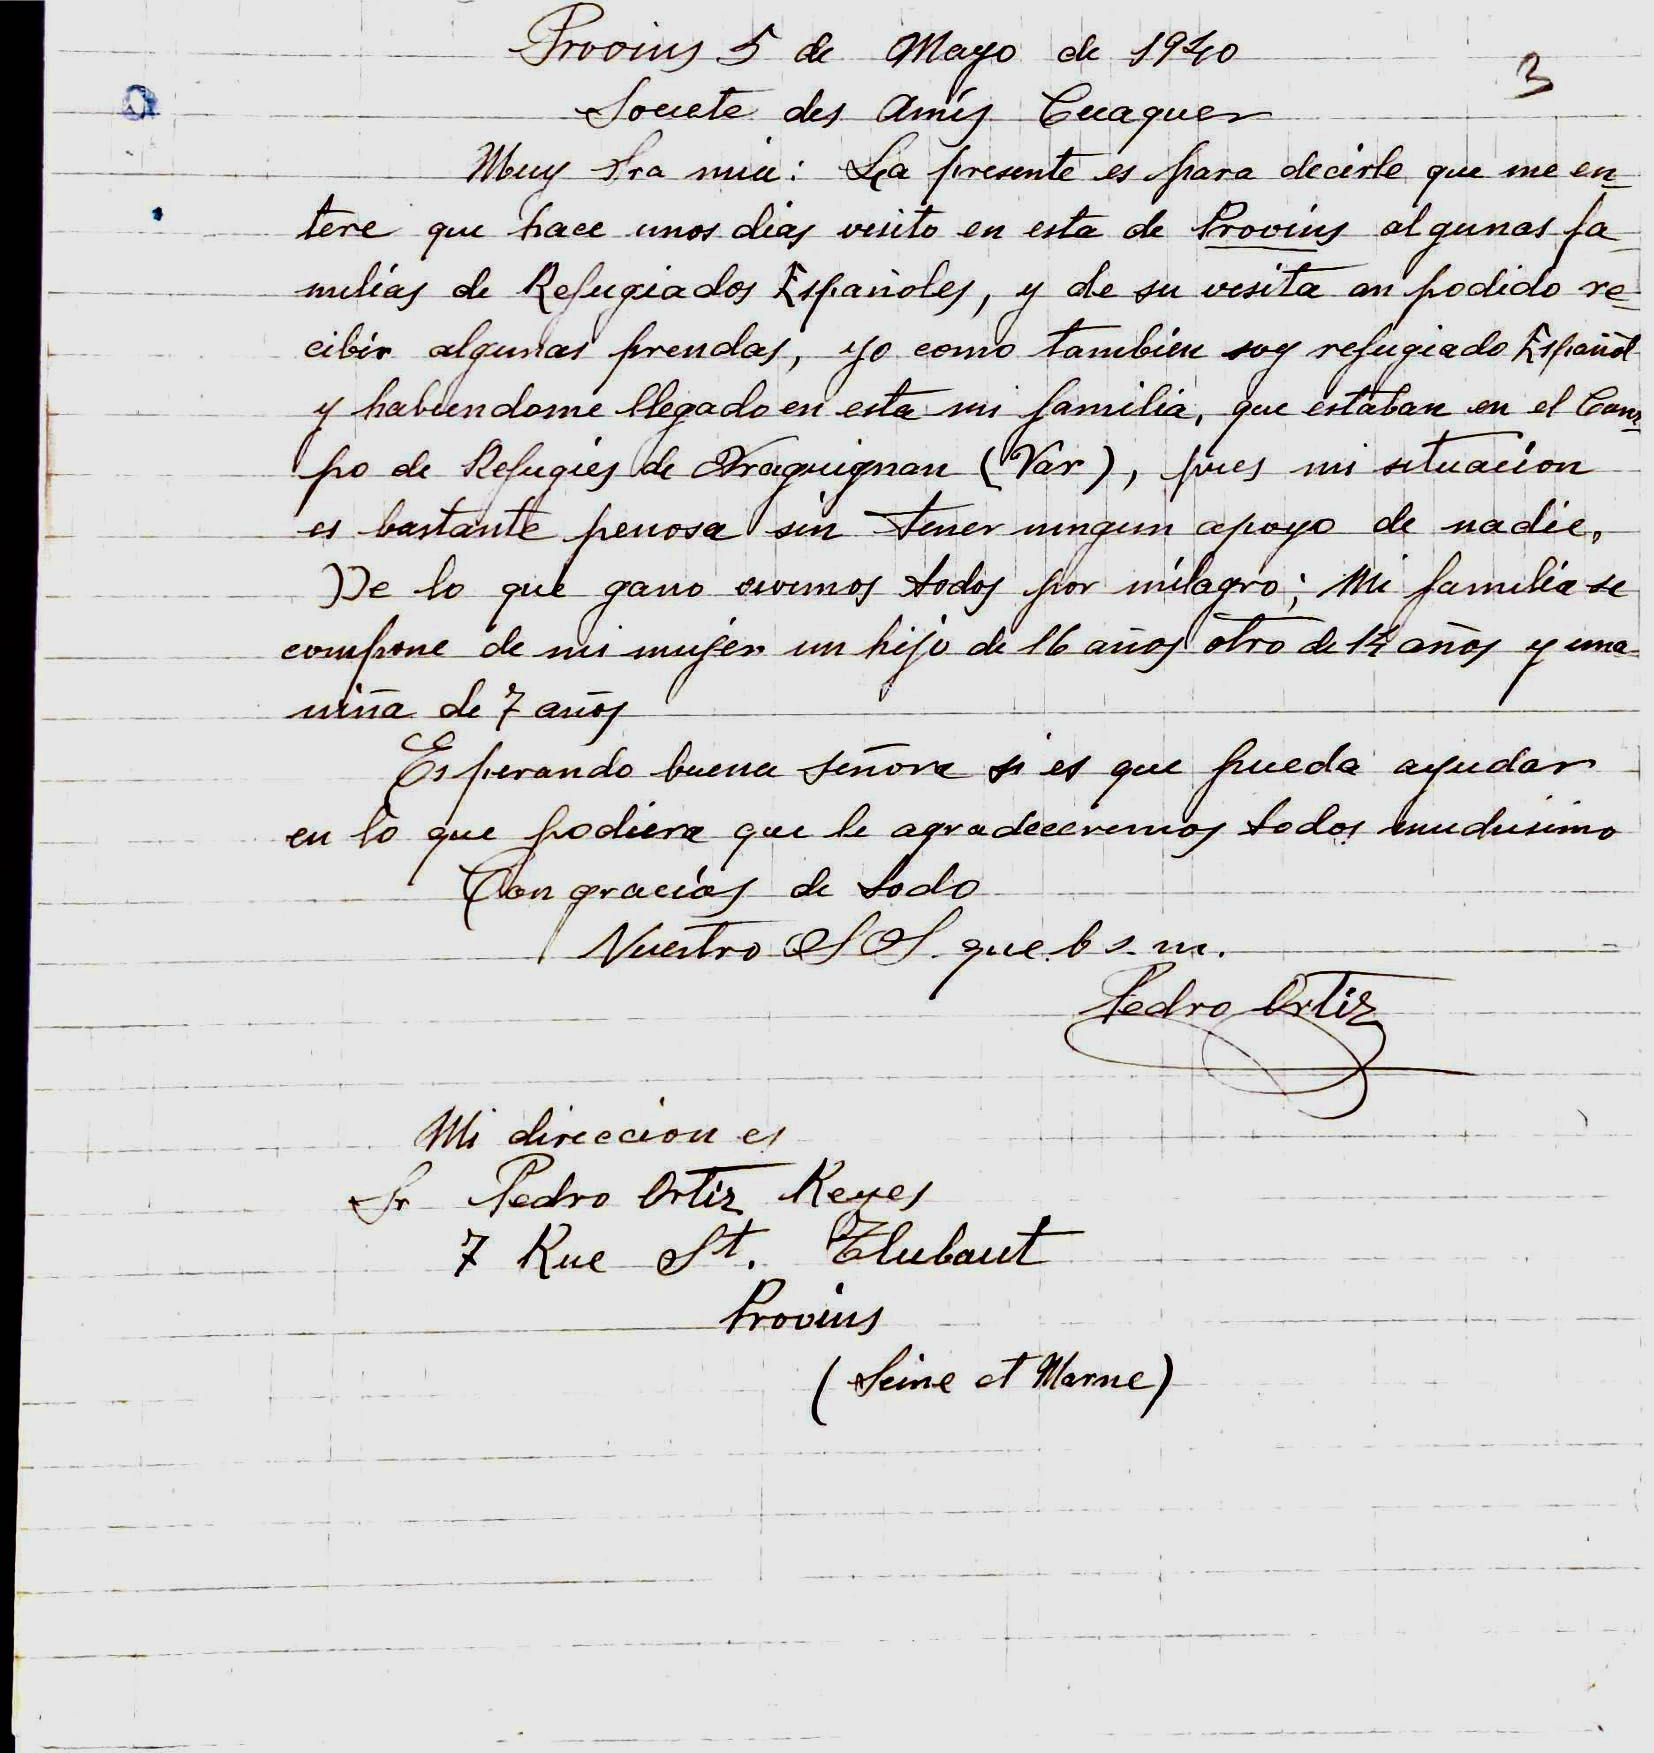 3
Provins 5 de Mayo de 1940
Societe des Amis Cuaquer
Muy Sra mia: La presente es para decirle que me en=
tere que hace unos dias visito en esta de Provins algunas fa=
milias de Refugiados Españoles, y de su visita an podido re=
cibir algunas prendas, yo como tambien soy refugiado Español
y habiendome llegado en esta mi familia, que estaban en el Cam=
po de Refugies de Draguignan (Var), pues mi situacion
es bastante penosa sin tener ningun apoyo de nadie.
De lo que gano vivimos todos por milagro; Mi familia se
compone de mi mujer un hijo de 16 años otro de años y una
niña de 7 años
Esperando buena señora si es que pueda ayudar
en lo que podiera que le agradeceremos todos muchisimo
Con gracias de todo
Nuestro S S que b s. m.
Pedro Ortiz
Mi direccion es
Sr Pedro Ortiz Reyes
7 Rue St. Thibaut
Provins
(Seine et Marne)